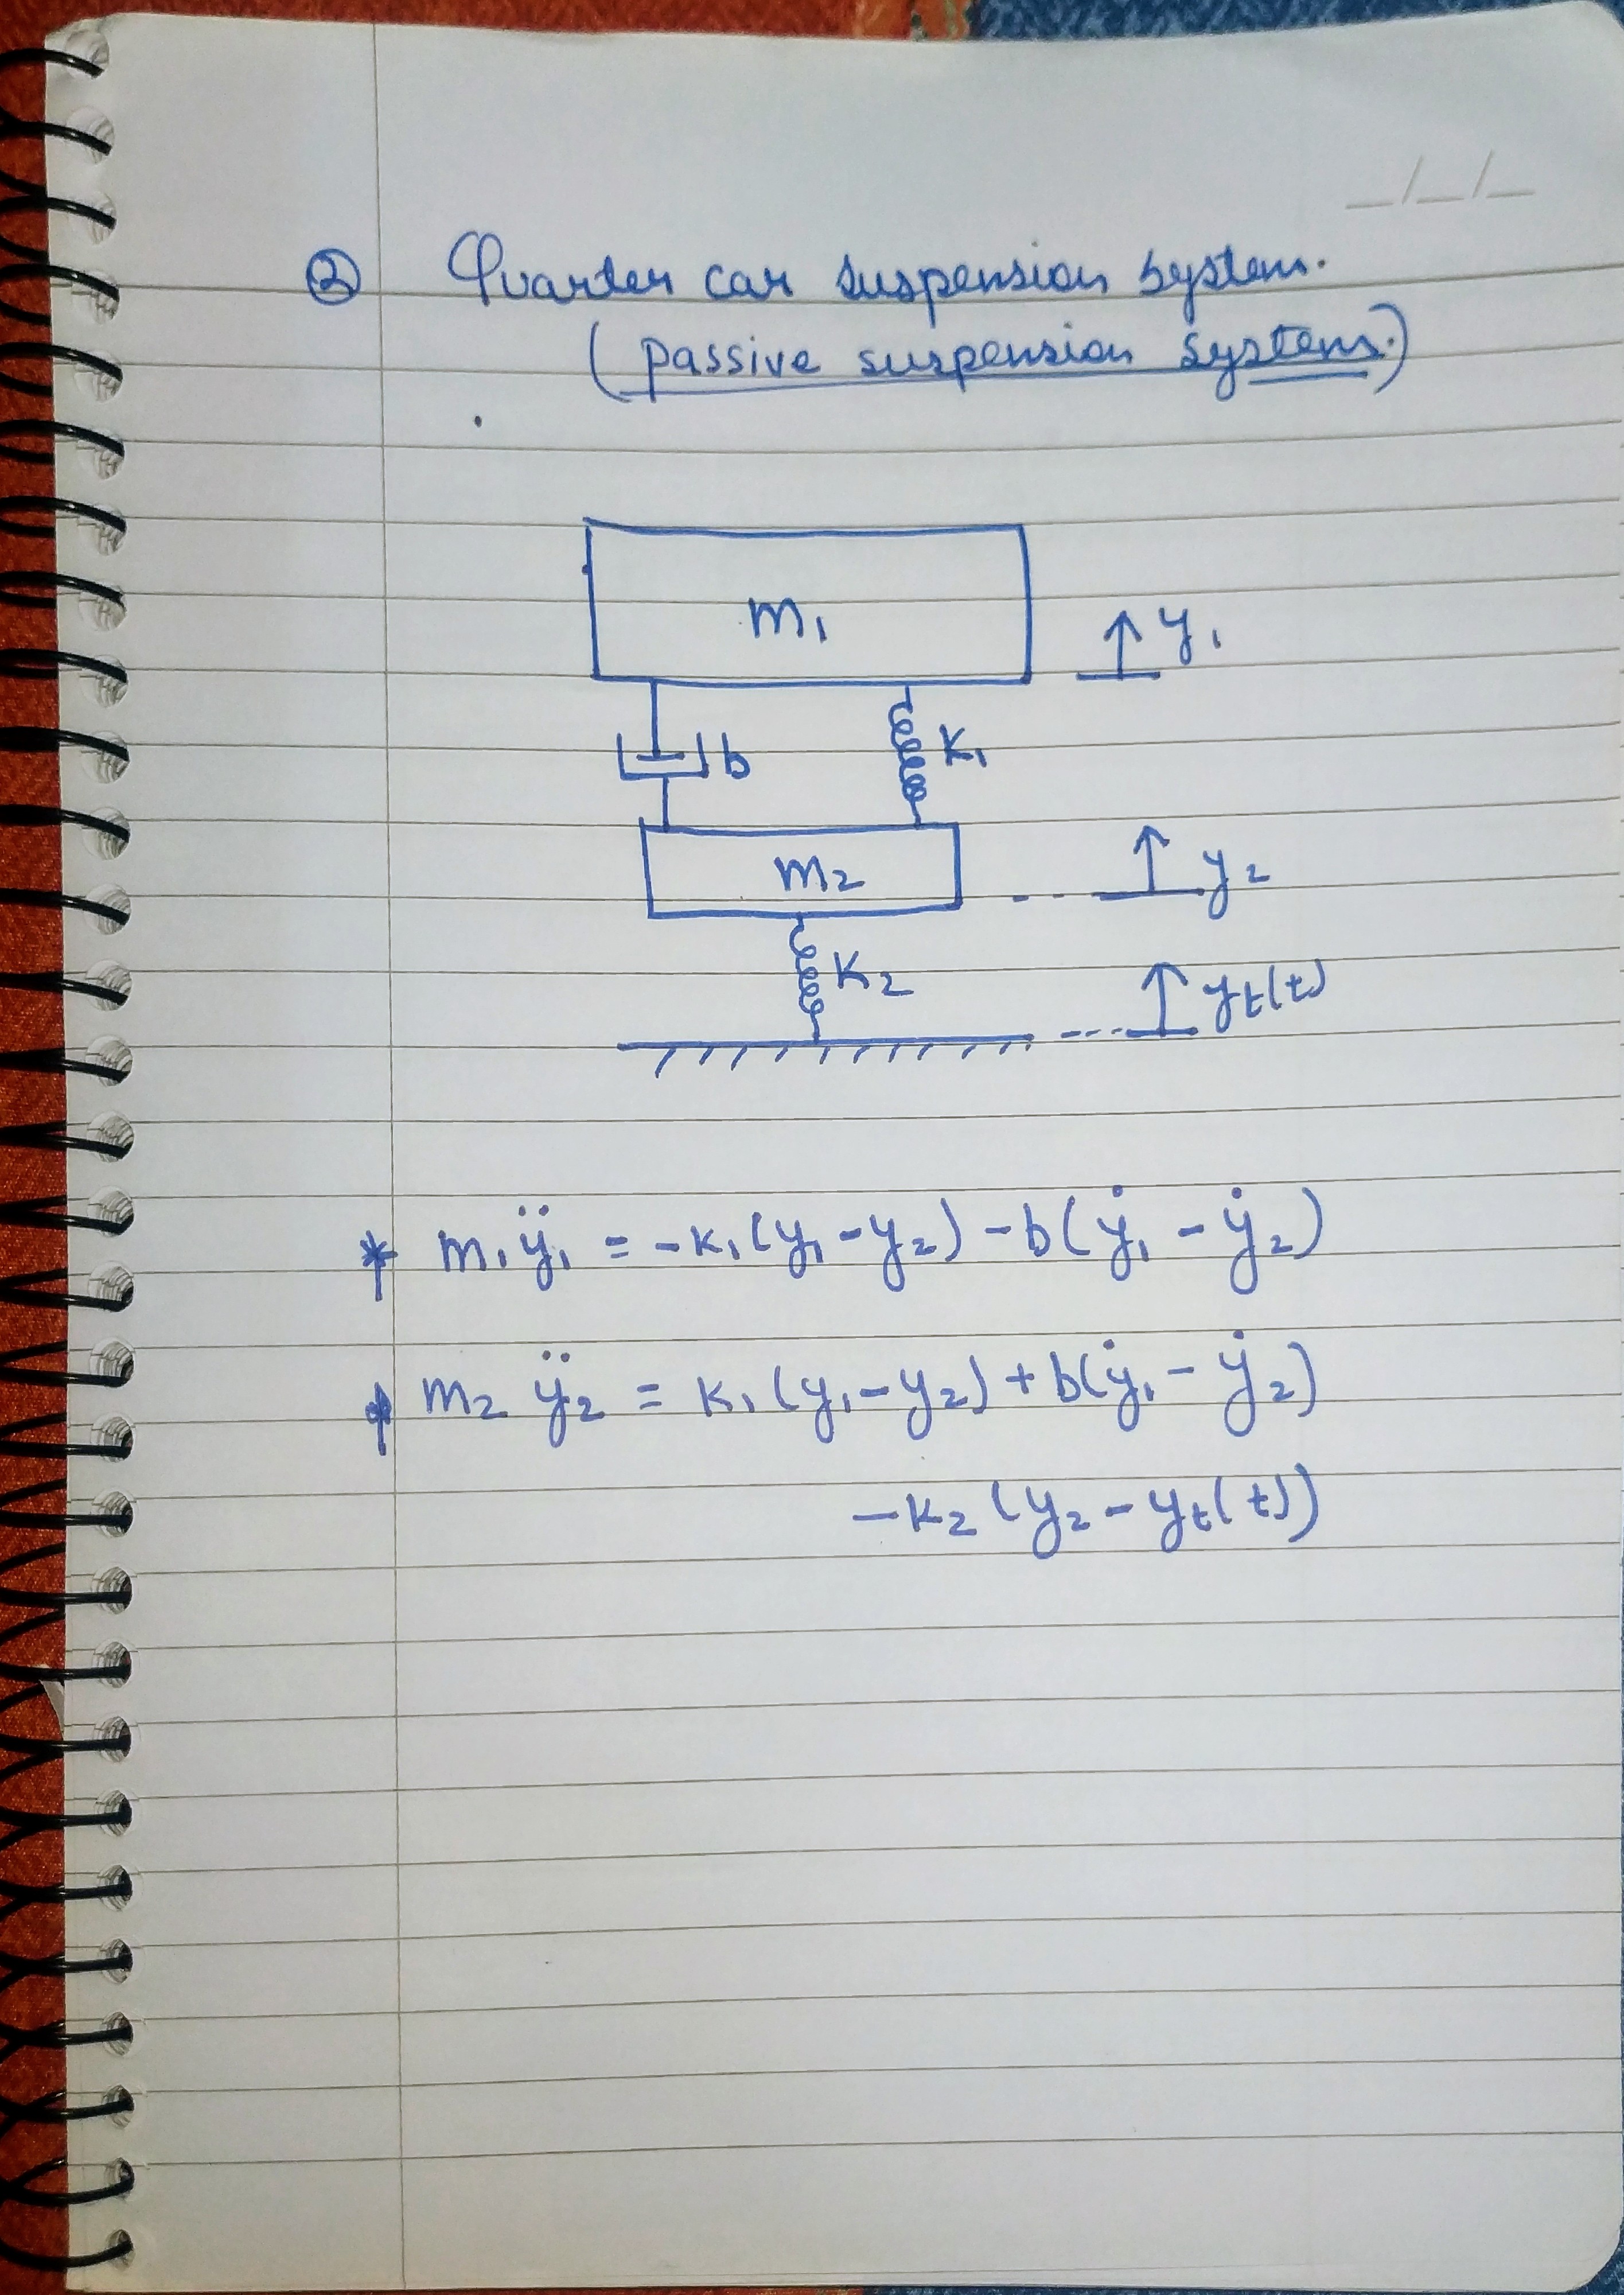 ② Quarter car suspension system.
(passive suspension system.)
m₁
y₁
b
K₁
m₂
y₂
K₂
yₜ(t)
* m₁ÿ₁ = -K₁(y₁-y₂) - b(ẏ₁ - ẏ₂)
* m₂ ÿ₂ = K₁(y₁-y₂) + b(ẏ₁ - ẏ₂)
-K₂(y₂ - yₜ(t))